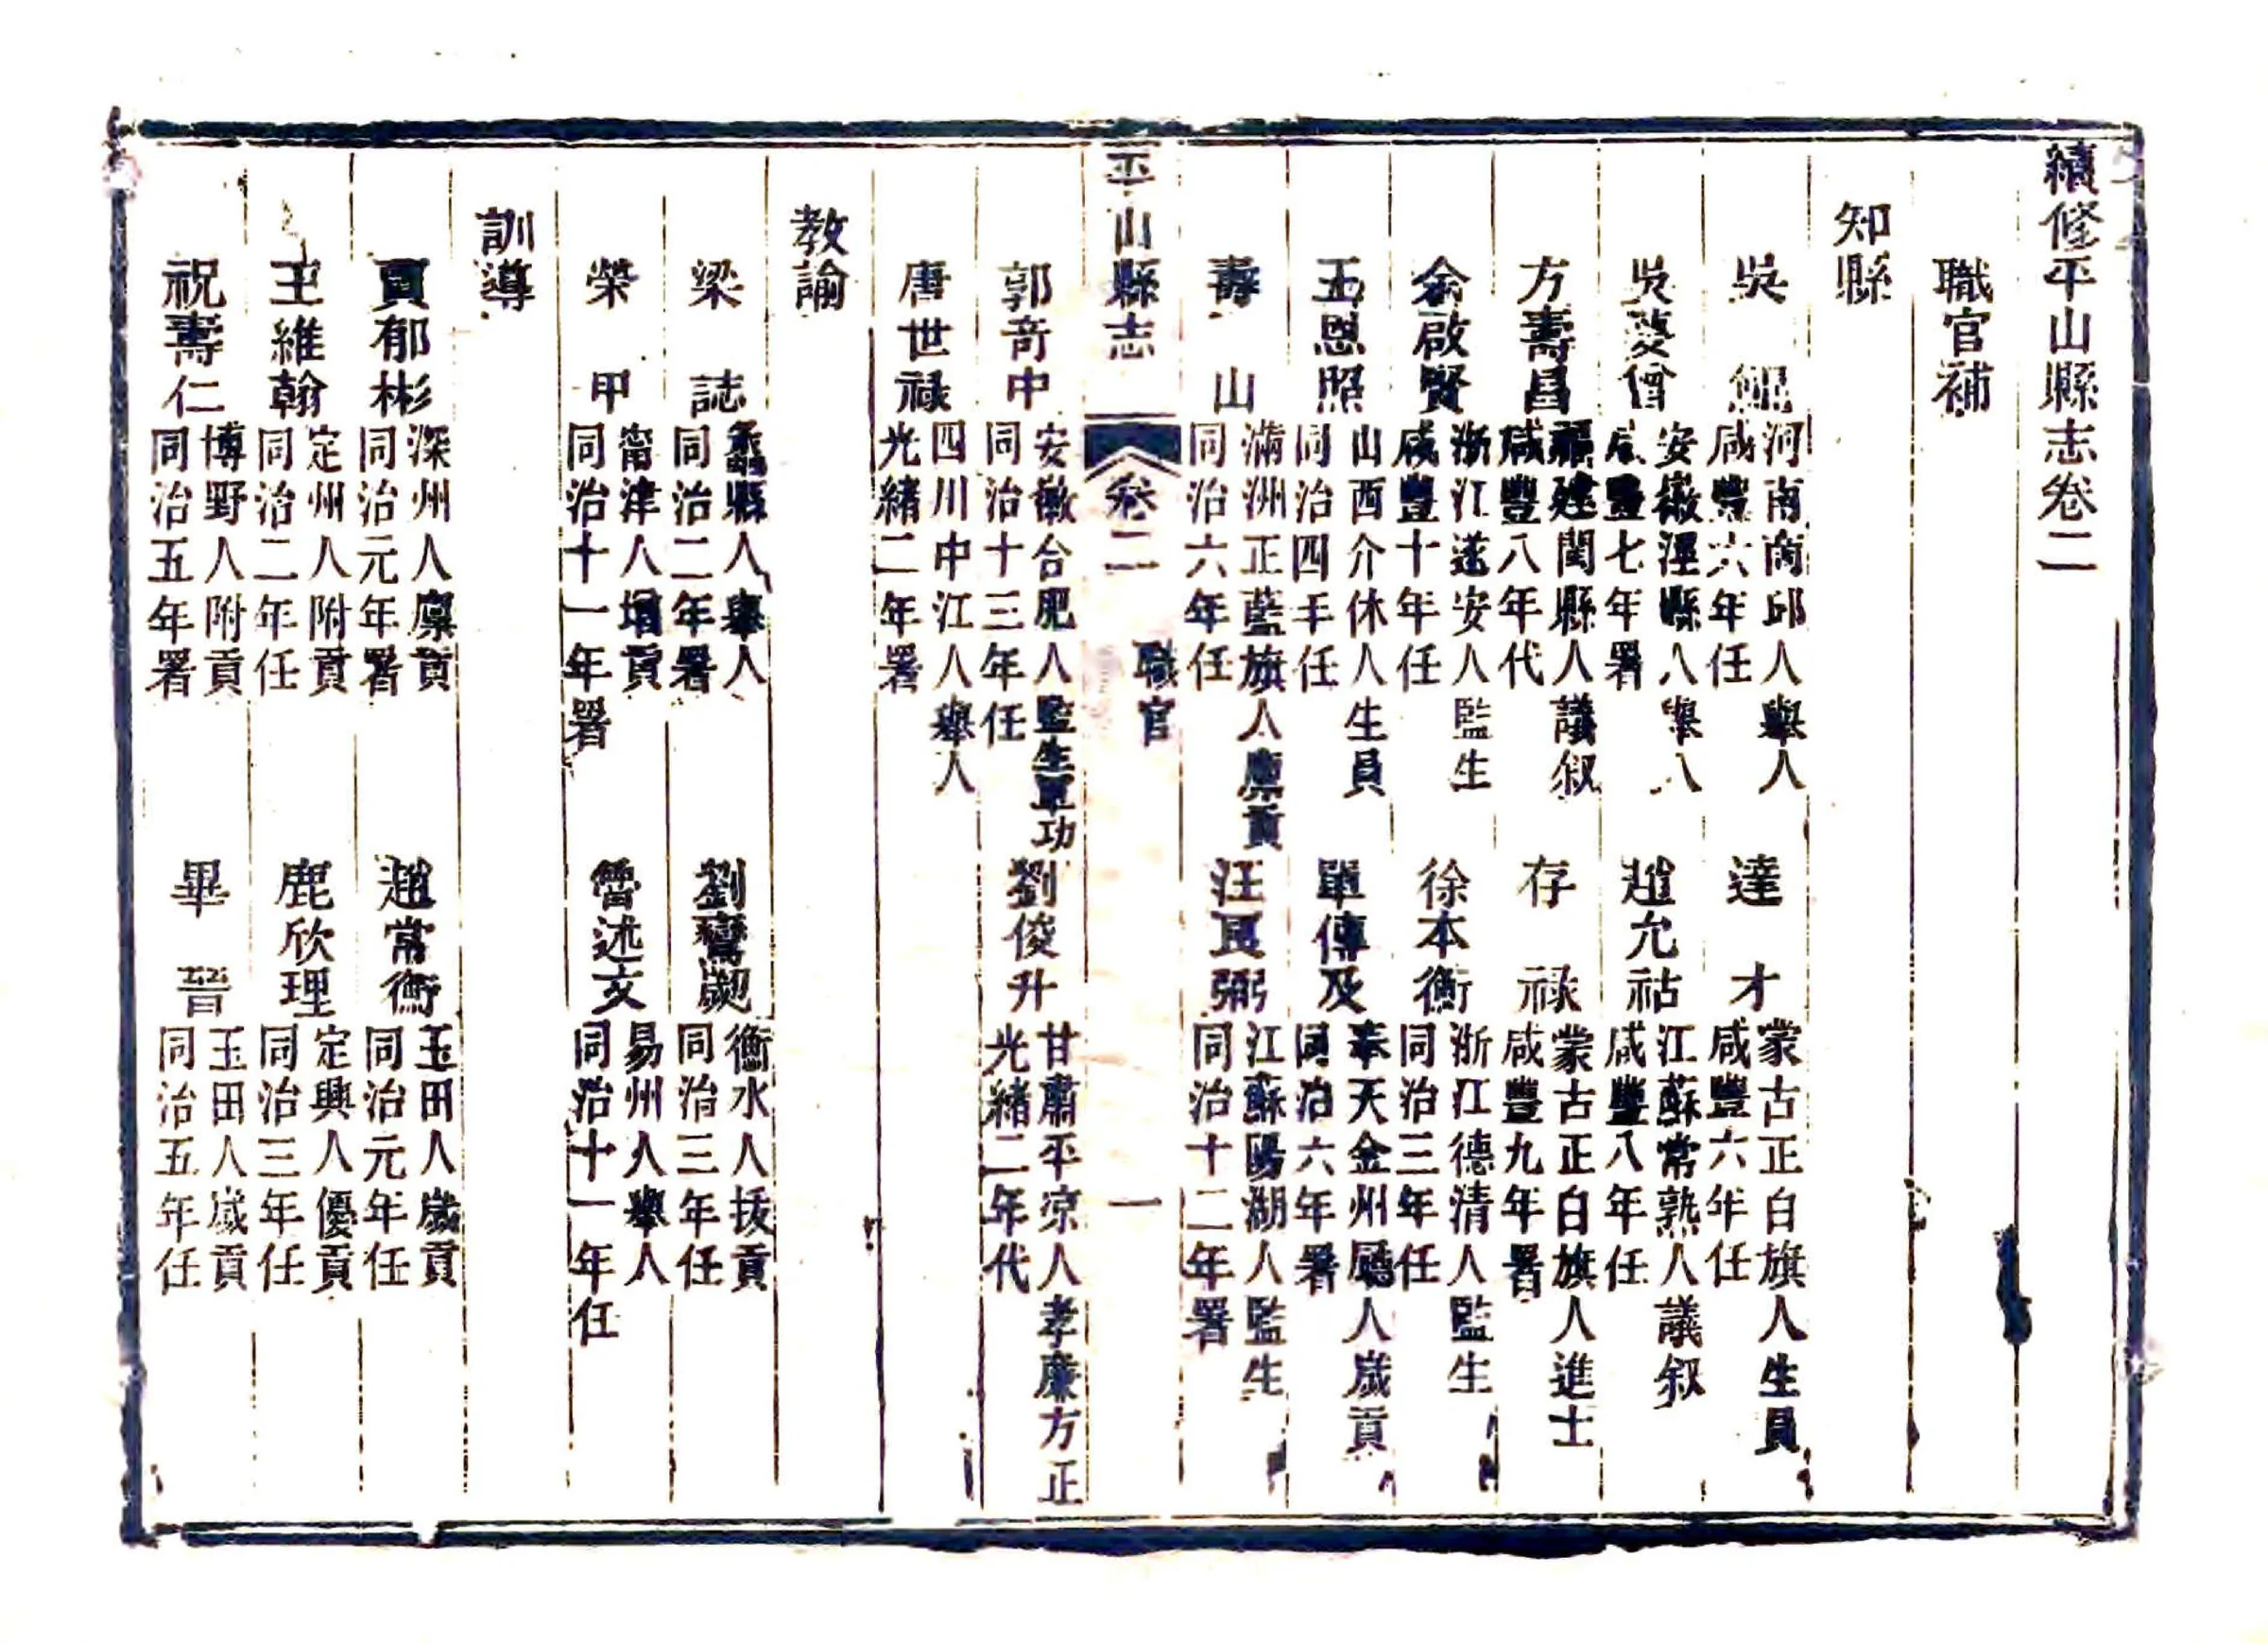 續修平山縣志卷二
職官補
知縣
吳　熙 河南商邱人舉人 咸豐六年任
達　才 蒙古正白旗人生員 咸豐六年任
吳僧 安徽涇縣人舉人 咸豐七年署
趙允祜 江蘇常熟人議叙 咸豐八年任
方壽昌 福建閩縣人議叙 咸豐八年代
存　祿 蒙古正白旗人進士 咸豐九年署
余啟賢 浙江遂安人監生 咸豐十年任
徐本衡 浙江德清人監生 同治三年任
王恩照 山西介休人生員 同治四年任
單傳及 奉天金州廳人歲貢 同治六年署
壽　山 滿洲正藍旗人廩貢 同治六年任
汪良弼 江蘇陽湖人監生 同治十二年署
平山縣志 卷二 職官 一
郭奇中 安徽合肥人監生軍功 同治十三年任
劉俊升 甘肅平凉人孝廉方正 光緒二年代
唐世祿 四川中江人舉人 光緒二年署
教諭
梁　誌 蠡縣人舉人 同治二年署
劉鸞 衡水人拔貢 同治三年任
榮　甲 甯津人增貢 同治十一年署
魯述文 易州人舉人 同治十一年任
訓導
賈郁彬 深州人廩貢 同治元年署
趙常衡 玉田人歲貢 同治元年任
王維翰 定州人附貢 同治二年任
鹿欣理 定興人優貢 同治三年任
祝壽仁 博野人附貢 同治五年署
畢　晉 玉田人歲貢 同治五年任